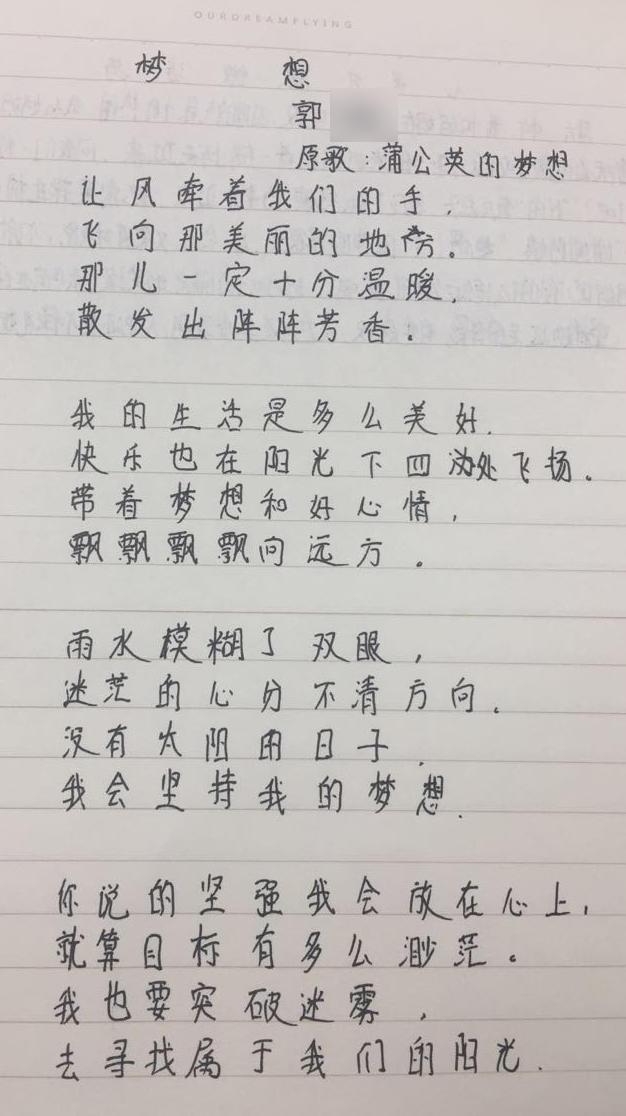 OURDREAMFLYING
梦 想
郭
原歌:蒲公英的梦想
让风牵着我们的手,
飞向那美丽的地方。
那儿一定十分温暖,
散发出阵阵芳香。
我的生活是多么美好,
快乐也在阳光下四处飞扬。
带着梦想和好心情,
飘飘飘飘向远方。
雨水模糊了双眼,
迷茫的心分不清方向。
没有太阳的日子,
我会坚持我的梦想.
你说的坚强我会放在心上,
就算目标有多么渺茫。
我也要突破迷雾,
去寻找属于我们的阳光.